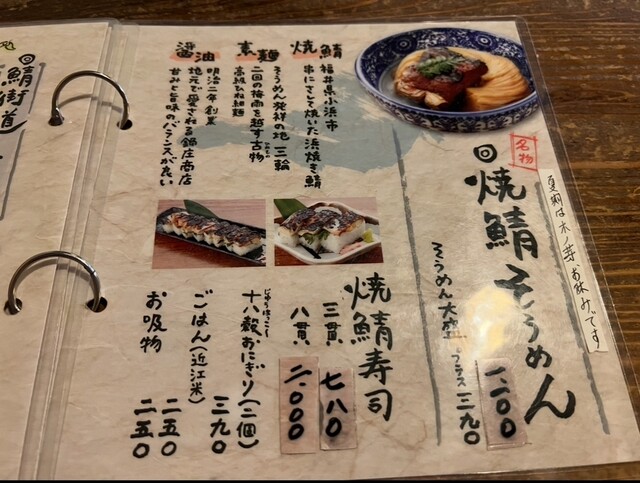 夏期は木ノ芽お休みです
名物
焼鯖そうめん
一、二〇〇
そうめん大盛 プラス三九〇
焼鯖
福井県小浜市
串にさして焼いた浜焼き鯖
素麺
そうめん発祥の地 三輪
二回の梅雨を越す古物
高級ひね細麺
醤油
明治二年創業
地元で愛される鍋庄商店
甘みと旨味のバランスが良い
焼鯖寿司
三貫 七八〇
八貫 二、〇〇〇
十八穀おにぎり(二個) 三九〇
ごはん(近江米) 二五〇
お吸物 二五〇
鯖街道